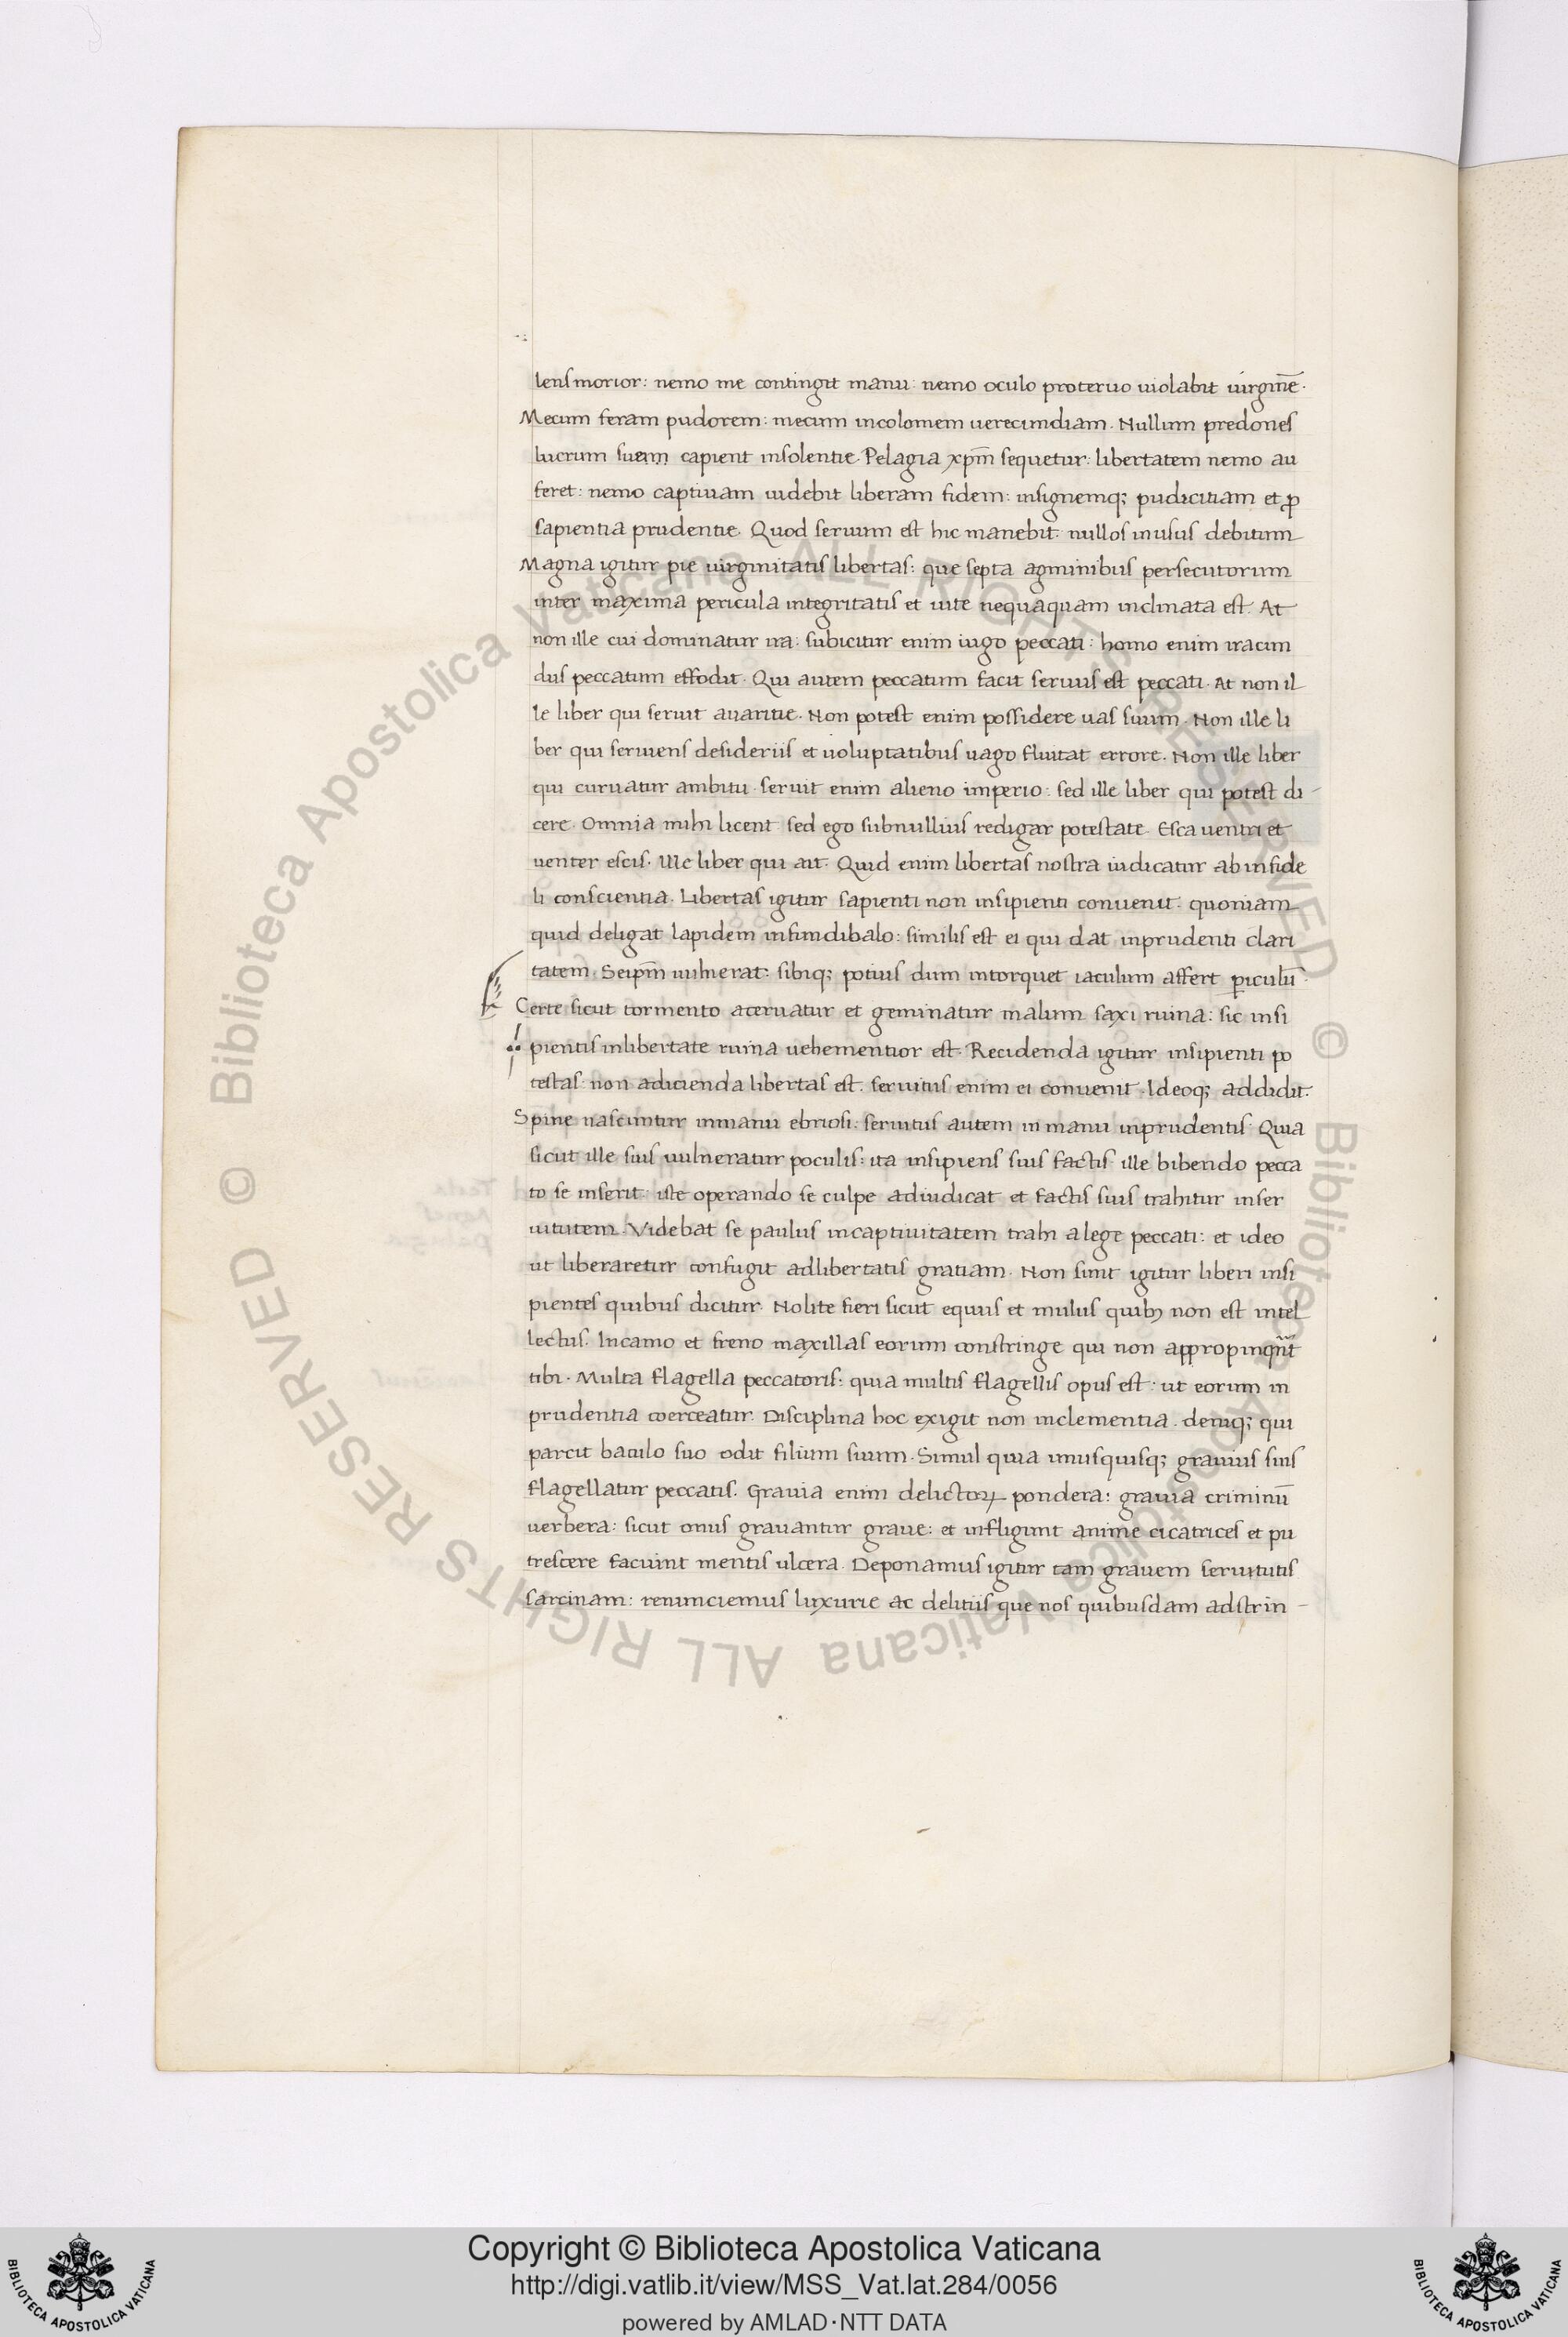 lens morior: nemo me contingit manu: nemo oculo proteruo uiolabit uirginē.
Mecum feram pudorem: mecum incolomem uerecundiam. Nullum predones
lucrum suem capient insolentie. Pelagia xp̄m sequetur: libertatem nemo au
feret: nemo captiuam uidebit liberam fidem: insignemq; pudicitiam et ꝓ
sapientia prudentie. Quod seruum est hic manebit: nullos inusus debitum
Magna igitur pie uirginitatis libertas: que septa agminibus persecutorum
inter maxima pericula integritatis et uite nequaquam inclinata est. At
non ille cui dominatur ira: subicitur enim iugo peccati: homo enim iracun
dus peccatum effodit. Qui autem peccatum facit seruus est peccati. At non il
le liber qui seruit auaritie. Non potest enim possidere uas suum. Non ille li
ber qui seruiens desideriis et uoluptatibus uago fluitat errore. Non ille liber
qui curuatur ambitu seruit enim alieno imperio: sed ille liber qui potest di
cere. Omnia mihi licent sed ego subnullius redigar potestate. Esca uentri et
uenter escis. Ille liber qui ait. Quid enim libertas nostra iudicatur ab infide
li conscientia. Libertas igitur sapienti non insipienti conuenit: quoniam
quid deligat lapidem infundibalo: similis est ei qui dat inprudenti clari
tatem. Seip̄m uulnerat: sibiq; potius dum intorquet iaculum affert ꝑiculū.
Certe sicut tormento aceruatur et geminatur malum saxi ruina: sic insi
pientis inlibertate ruina uehementior est. Recidenda igitur insipienti po
testas: non adicienda libertas est. seruitus enim ei conuenit. Ideoq; addidit.
Spine nascuntur inmanu ebriosi: seruitus autem in manu inprudentis. Quia
sicut ille suis uulneratur poculis: ita insipiens suis factis: ille bibendo pecca
to se inserit: iste operando se culpe adiudicat et factis suis trahitur inser
uitutem. Videbat se paulus incaptiuitatem trahi alege peccati: et ideo
ut liberaretur confugit adlibertatis gratiam. Non sunt igitur liberi insi
pientes quibus dicitur. Nolite fieri sicut equus et mulus quibꝫ non est intel
lectus. Incamo et freno maxillas eorum constringe qui non appropinqn̄t
tibi. Multa flagella peccatoris: quia multis flagellis opus est: ut eorum in
prudentia coerceatur. Disciplina hoc exigit non inclementia. deniq; qui
parcit baculo suo odit filium suum. Simul quia unusquisq; grauius suis
flagellatur peccatis. Grauia enim delictoꝝ pondera: grauia criminū
uerbera: sicut onus grauantur graue: et infligunt anime cicatrices et pu
trescere faciunt mentis ulcera. Deponamus igitur tam grauem seruitutis
sarcinam: renunciemus luxurie ac delitiis que nos quibusdam adstrin
Copyright © Biblioteca Apostolica Vaticana
http://digi.vatlib.it/view/MSS_Vat.lat.284/0056
powered by AMLAD·NTT DATA
BIBLIOTECA APOSTOLICA VATICANA
BIBLIOTECA APOSTOLICA VATICANA
© Biblioteca Apostolica Vaticana ALL RIGHTS RESERVED © Biblioteca Apostolica Vaticana ALL RIGHTS RESERVED